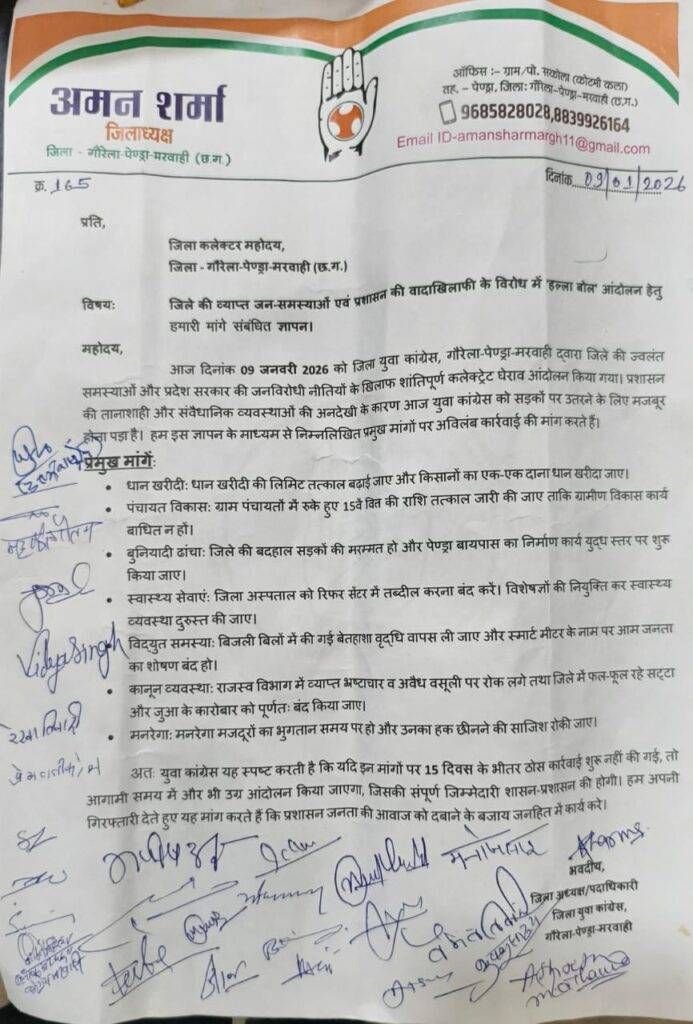 अमन शर्मा
जिलाध्यक्ष
जिला - गौरेला-पेण्ड्रा-मरवाही (छ.ग.)
ऑफिस :- ग्राम/पो. सकोला (कोटमी कला)
तह. - पेण्ड्रा, जिला: गौरेला-पेण्ड्रा-मरवाही (छ.ग.)
9685828028,8839926164
Email ID-amansharmargh11@gmail.com
क्र. 165
दिनांक 09/01/2026
प्रति,
जिला कलेक्टर महोदय,
जिला - गौरेला-पेण्ड्रा-मरवाही (छ.ग.)
विषय: जिले की व्याप्त जन-समस्याओं एवं प्रशासन की वादाखिलाफी के विरोध में 'हल्ला बोल' आंदोलन हेतु
हमारी मांगे संबंधित ज्ञापन।
महोदय,
आज दिनांक 09 जनवरी 2026 को जिला युवा कांग्रेस, गौरेला-पेण्ड्रा-मरवाही द्वारा जिले की ज्वलंत
समस्याओं और प्रदेश सरकार की जनविरोधी नीतियों के खिलाफ शांतिपूर्ण कलेक्ट्रेट घेराव आंदोलन किया गया। प्रशासन
की तानाशाही और संवैधानिक व्यवस्थाओं की अनदेखी के कारण आज युवा कांग्रेस को सड़कों पर उतरने के लिए मजबूर
होना पड़ा है। हम इस ज्ञापन के माध्यम से निम्नलिखित प्रमुख मांगों पर अविलंब कार्रवाई की मांग करते हैं।
प्रमुख मांगें:
• धान खरीदी: धान खरीदी की लिमिट तत्काल बढ़ाई जाए और किसानों का एक-एक दाना धान खरीदा जाए।
• पंचायत विकास: ग्राम पंचायतों में रुके हुए 15वे वित की राशि तत्काल जारी की जाए ताकि ग्रामीण विकास कार्य
बाधित न हों।
• बुनियादी ढांचा: जिले की बदहाल सड़कों की मरम्मत हो और पेण्ड्रा बायपास का निर्माण कार्य युद्ध स्तर पर शुरू
किया जाए।
• स्वास्थ्य सेवाएं: जिला अस्पताल को रिफर सेंटर में तब्दील करना बंद करें। विशेषज्ञों की नियुक्ति कर स्वास्थ्य
व्यवस्था दुरुस्त की जाए।
विद्युत समस्या: बिजली बिलों में की गई बेतहाशा वृद्धि वापस ली जाए और स्मार्ट मीटर के नाम पर आम जनता
का शोषण बंद हो।
• कानून व्यवस्था: राजस्व विभाग में व्याप्त भ्रष्टाचार व अवैध वसूली पर रोक लगे तथा जिले में फल-फूल रहे सट्टा
और जुआ के कारोबार को पूर्णतः बंद किया जाए।
• मनरेगा: मनरेगा मजदूरों का भुगतान समय पर हो और उनका हक छीनने की साजिश रोकी जाए।
अतः युवा कांग्रेस यह स्पष्ट करती है कि यदि इन मांगों पर 15 दिवस के भीतर ठोस कार्रवाई शुरू नहीं की गई, तो
आगामी समय में और भी उग्र आंदोलन किया जाएगा, जिसकी संपूर्ण जिम्मेदारी शासन-प्रशासन की होगी। हम अपनी
गिरफ्तारी देते हुए यह मांग करते हैं कि प्रशासन जनता की आवाज को दबाने के बजाय जनहित में कार्य करे।
Vidya Singh
भवदीय,
जिला अध्यक्ष/पदाधिकारी
जिला युवा कांग्रेस,
गौरेला-पेण्ड्रा-मरवाही